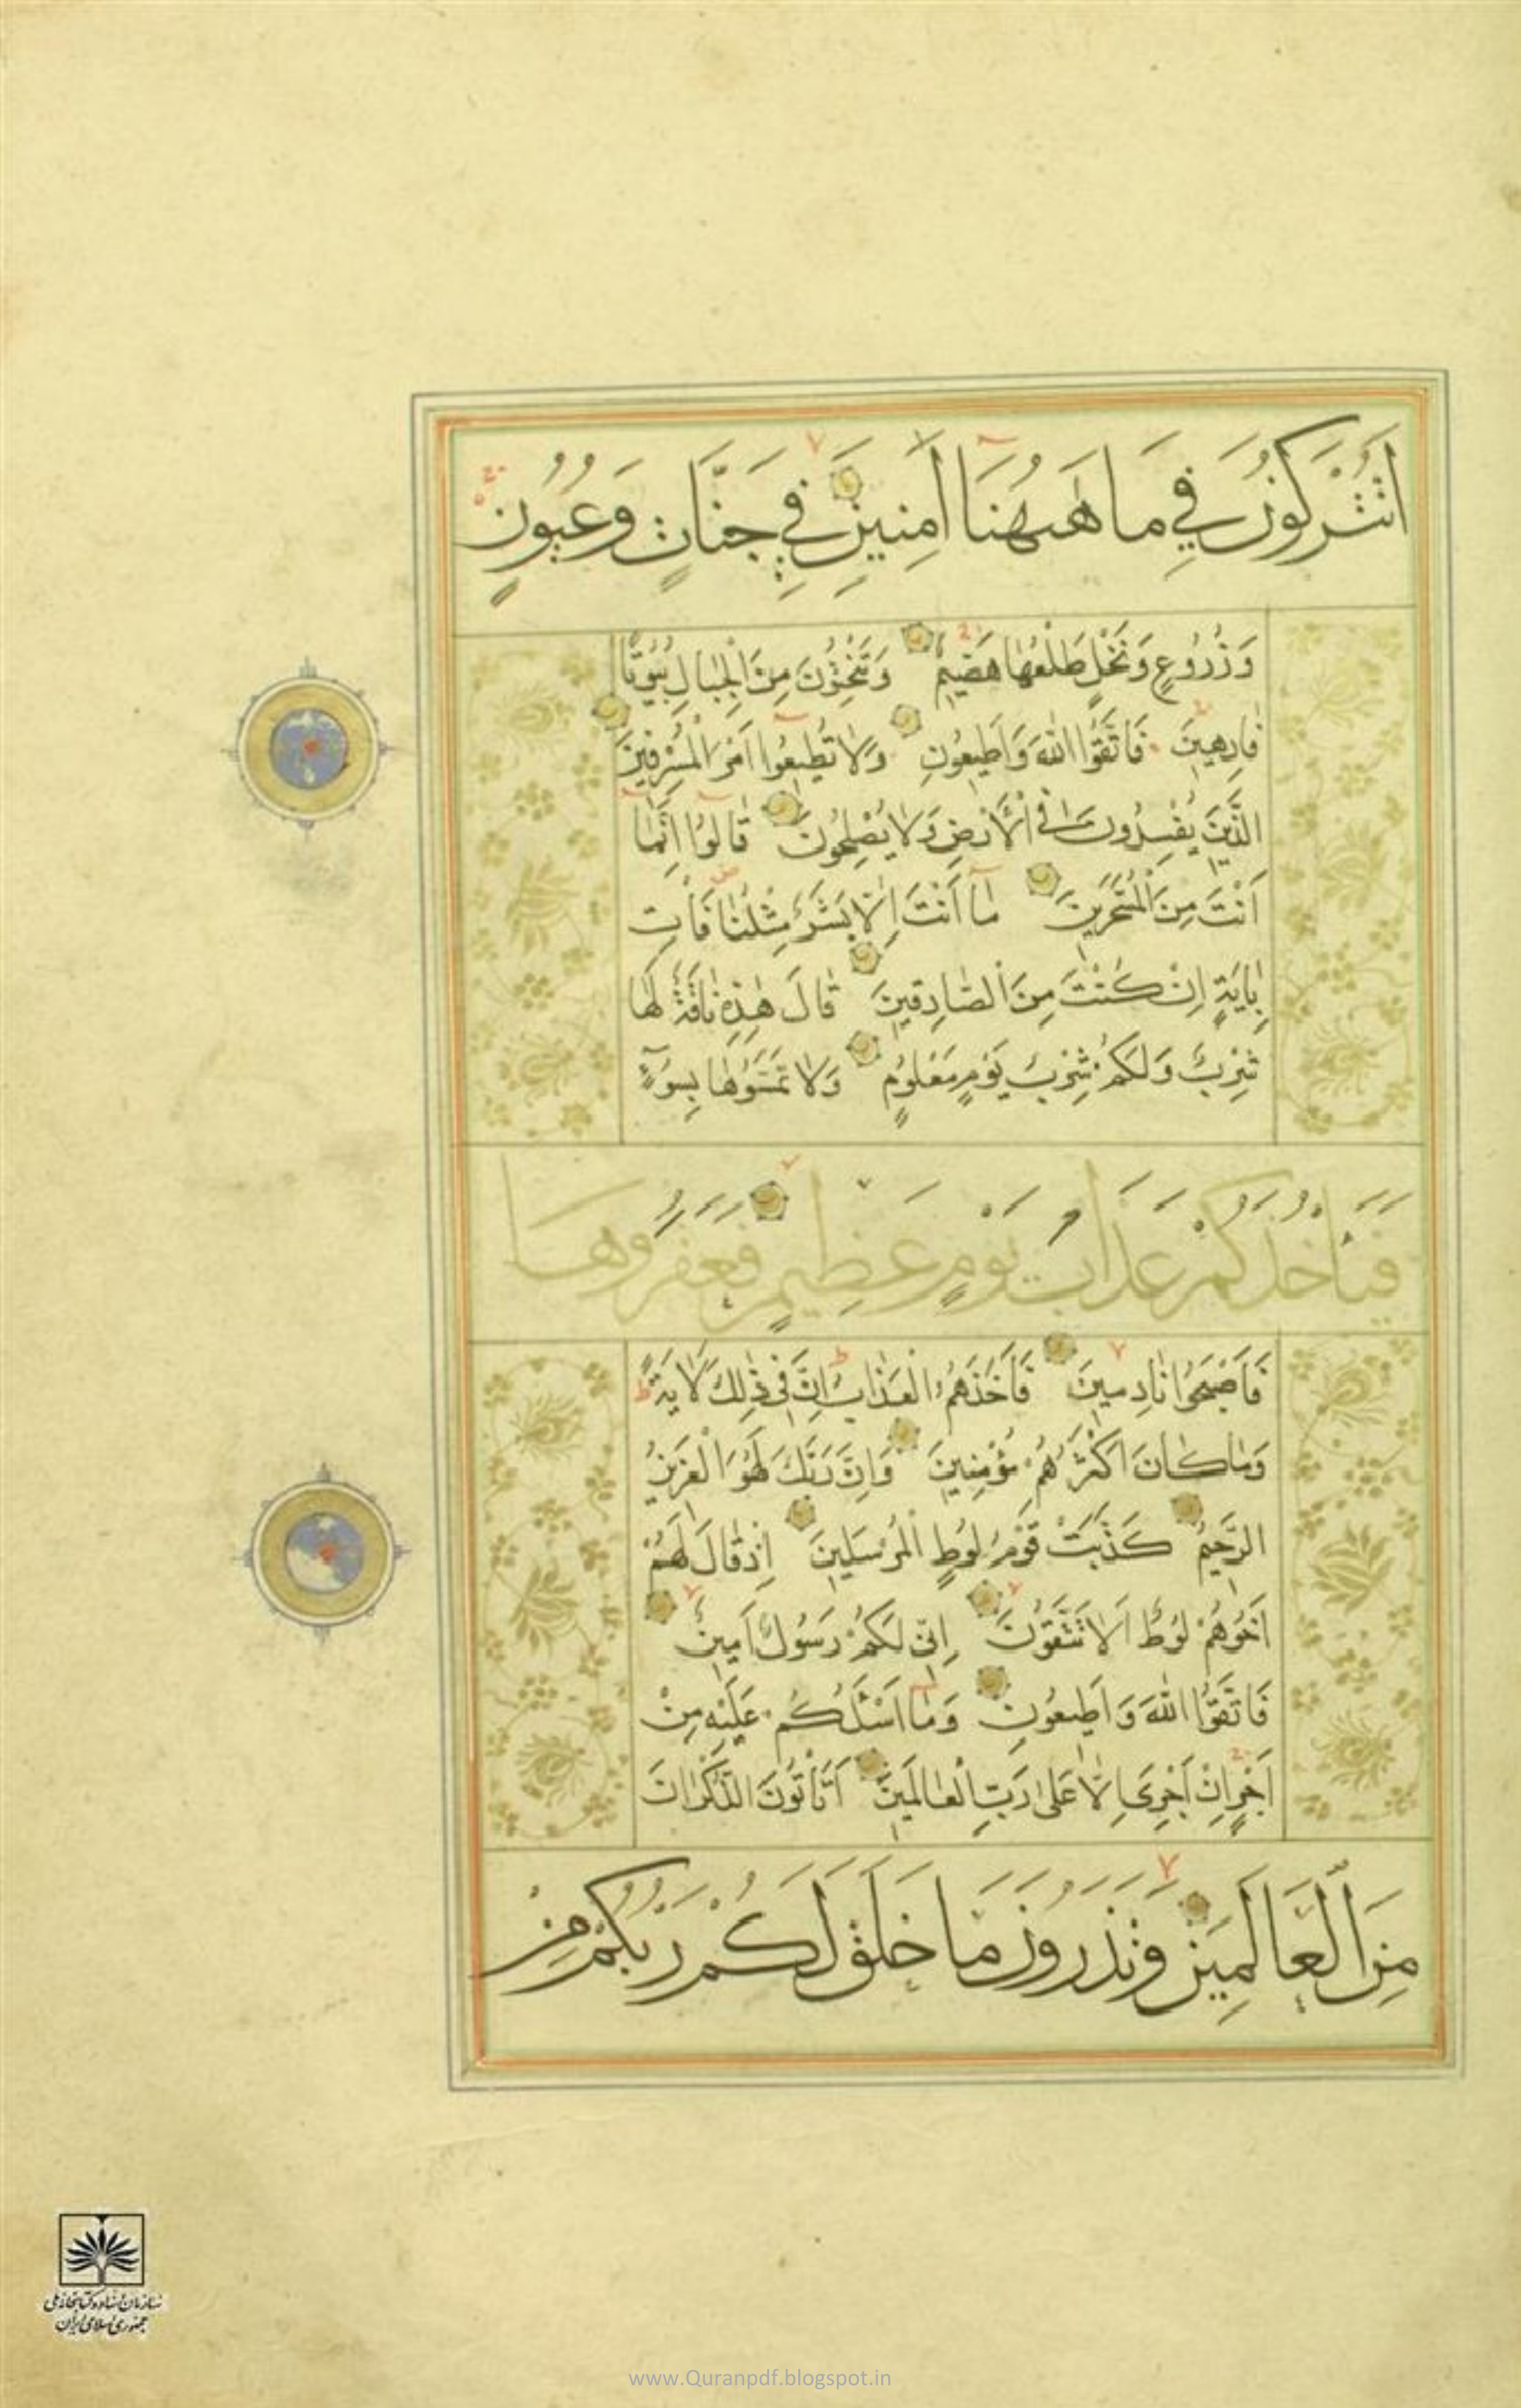 اَتُتْرَكُونَ فِي مَا هٰهُنَا اٰمِنِينَ فِي جَنَّاتٍ وَعُيُونٍ
وَزُرُوعٍ وَنَخْلٍ طَلْعُهَا هَضِيمٌ وَتَنْحِتُونَ مِنَ الْجِبَالِ بُيُوتًا
فَارِهِينَ فَاتَّقُوا اللّٰهَ وَاَطِيعُونِ وَلَا تُطِيعُوا اَمْرَ الْمُسْرِفِينَ
الَّذِينَ يُفْسِدُونَ فِي الْاَرْضِ وَلَا يُصْلِحُونَ قَالُوا اِنَّمَا
اَنْتَ مِنَ الْمُسَحَّرِينَ مَا اَنْتَ اِلَّا بَشَرٌ مِثْلُنَا فَأْتِ
بِاٰيَةٍ اِنْ كُنْتَ مِنَ الصَّادِقِينَ قَالَ هٰذِهِ نَاقَةٌ لَهَا
شِرْبٌ وَلَكُمْ شِرْبُ يَوْمٍ مَعْلُومٍ وَلَا تَمَسُّوهَا بِسُوءٍ
فَيَأْخُذَكُمْ عَذَابُ يَوْمٍ عَظِيمٍ فَعَقَرُوهَا
فَاَصْبَحُوا نَادِمِينَ فَاَخَذَهُمُ الْعَذَابُ اِنَّ فِي ذٰلِكَ لَاٰيَةً
وَمَا كَانَ اَكْثَرُهُمْ مُؤْمِنِينَ وَاِنَّ رَبَّكَ لَهُوَ الْعَزِيزُ
الرَّحِيمُ كَذَّبَتْ قَوْمُ لُوطٍ الْمُرْسَلِينَ اِذْ قَالَ لَهُمْ
اَخُوهُمْ لُوطٌ اَلَا تَتَّقُونَ اِنِّي لَكُمْ رَسُولٌ اَمِينٌ
فَاتَّقُوا اللّٰهَ وَاَطِيعُونِ وَمَا اَسْئَلُكُمْ عَلَيْهِ مِنْ
اَجْرٍ اِنْ اَجْرِيَ اِلَّا عَلٰى رَبِّ الْعَالَمِينَ اَتَأْتُونَ الذُّكْرَانَ
مِنَ الْعَالَمِينَ وَتَذَرُونَ مَا خَلَقَ لَكُمْ رَبُّكُمْ مِنْ
سازمان اسناد و کتابخانه ملی
جمهوری اسلامی ایران
www.Quranpdf.blogspot.in